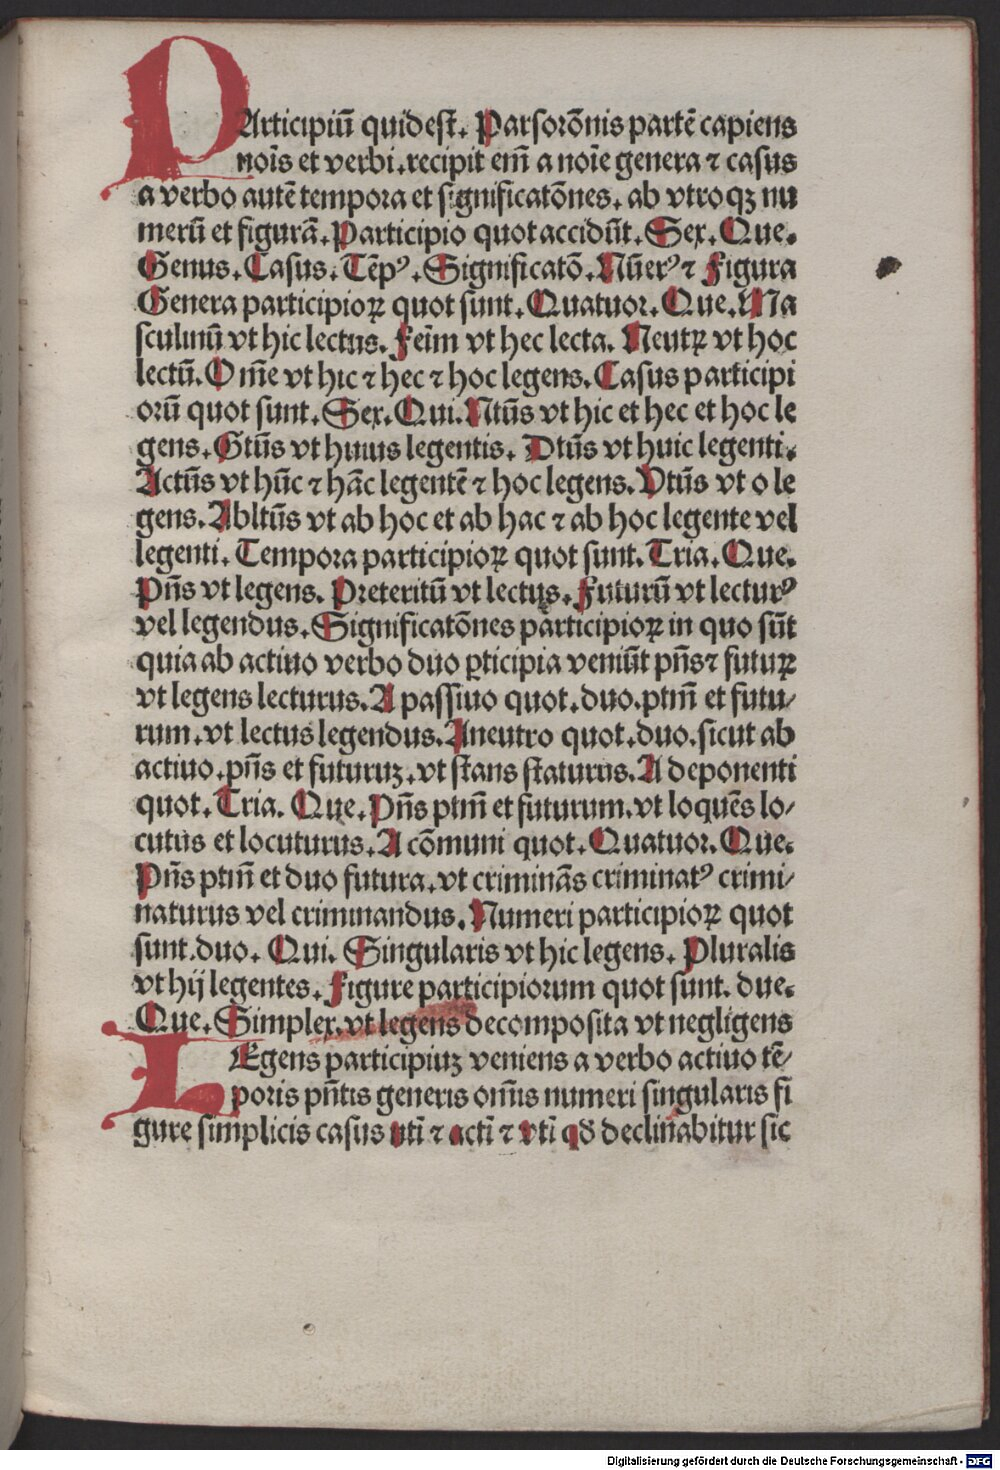 PArticipiū quid est. Pars orōnis partē capiens
noīs et verbi. recipit em̄ a noīe genera ⁊ casus
a verbo autē tempora et significatōnes. ab vtroqꝫ nu
merū et figurā. Participio quot accidūt. Sex. Que.
Genus. Casus. Tēpꝰ. Significatō. Nūerꝰ ⁊ Figura
Genera participioꝝ quot sunt. Quatuor. Que. Ma
sculinū vt hic lectus. Feīm vt hec lecta. Neutꝝ vt hoc
lectū. Om̄e vt hic ⁊ hec ⁊ hoc legens. Casus participi
orū quot sunt. Sex. Qui. Ntūs vt hic et hec et hoc le
gens. Gtūs vt huius legentis. Dtūs vt huic legenti.
Actūs vt hūc ⁊ hāc legentē ⁊ hoc legens. Vtūs vt o le
gens. Abltūs vt ab hoc et ab hac ⁊ ab hoc legente vel
legenti. Tempora participioꝝ quot sunt. Tria. Que.
Pn̄s vt legens. Preteritū vt lectus. Futurū vt lecturꝰ
vel legendus. Significatōnes participioꝝ in quo sūt
quia ab actiuo verbo duo ꝑticipia veniūt pn̄s ⁊ futuꝝ
vt legens lecturus. A passiuo quot. duo. ptm̄ et futu/
rum. vt lectus legendus. A neutro quot. duo. sicut ab
actiuo. pn̄s et futuruꝫ. vt stans staturus. A deponenti
quot. Tria. Que. Pn̄s ptm̄ et futurum. vt loquēs lo/
cutus et locuturus. A cōmuni quot. Quatuor. Que.
Pn̄s ptm̄ et duo futura. vt criminās criminatꝰ crimi/
naturus vel criminandus. Numeri participioꝝ quot
sunt. duo. Qui. Singularis vt hic legens. Pluralis
vt hij legentes. Figure participiorum quot sunt. due.
Que. Simplex. vt legens decomposita vt negligens
LEgens participiuꝫ veniens a verbo actiuo tē/
poris pn̄tis generis om̄is numeri singularis fi
gure simplicis casus ntī ⁊ actī ⁊ vtī qd̄ declinabitur sic
Digitalisierung gefördert durch die Deutsche Forschungsgemeinschaft - DFG